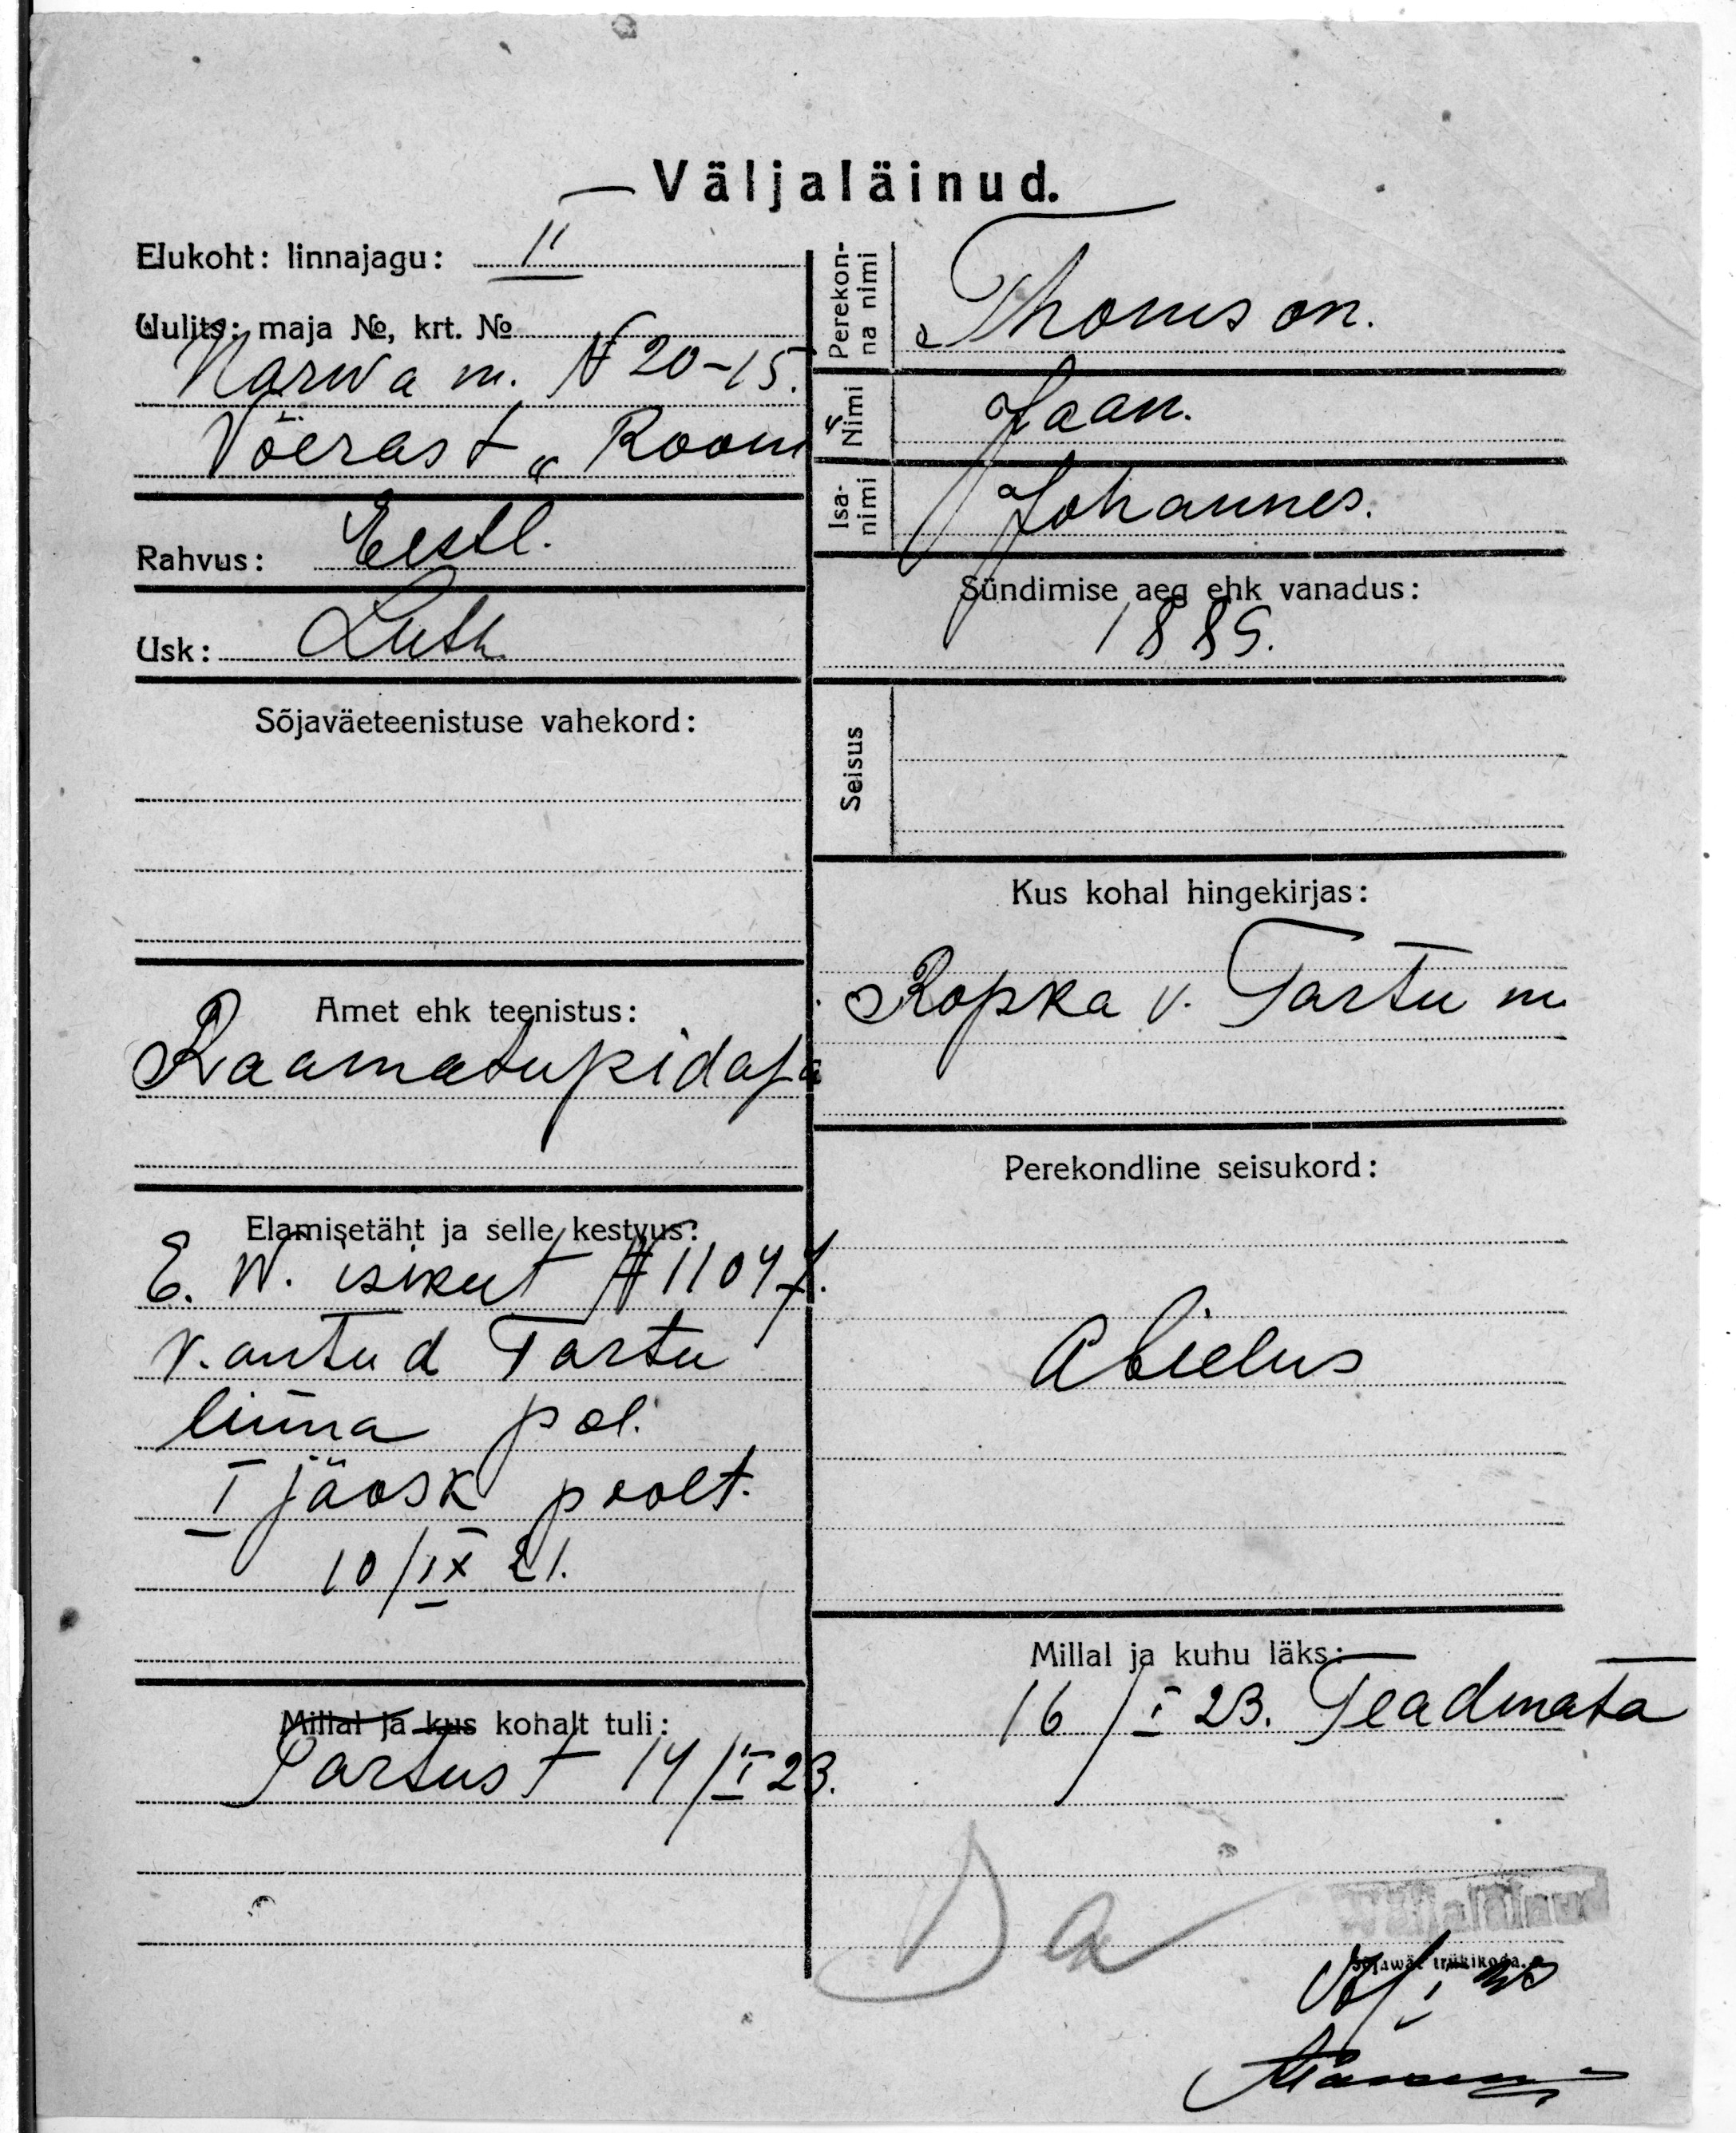 Väljaläinud.
Elukoht: linnajagu: II
Uulits: maja №, krt. №
Narwa m. N 20-15.
Võerast „Room"
Rahvus: Eestl.
Usk: Luth.
Sõjaväeteenistuse vahekord:
Amet ehk teenistus:
Raamatupidaja
Elamisetäht ja selle kestvus:
E. W. isikut N 11047.
v. antud Tartu
linna pol.
I jäosk poolt.
10/IX 21.
Millal ja kus kohalt tuli:
Tartust 14/I 23.
Perekonna nimi Thomson.
Nimi Jaan.
Isanimi Johannes.
Sündimise aeg ehk vanadus:
1889.
Seisus
Kus kohal hingekirjas:
Ropka v. Tartu m
Perekondline seisukord:
Abielus
Millal ja kuhu läks:
16/I 23. Teadmata
Da
Väljaläinud
Sõjawäe trükikoda.